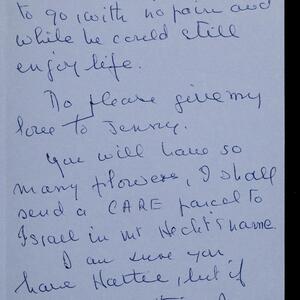 to go, with no pain and
while he could still
enjoy life.
Do please give my
love to Jenny.
You will have so
many flowers, I shall
send a CARE parcel to
Israel in Mr Hecht's name.
I am sure you
have Hattie, but if